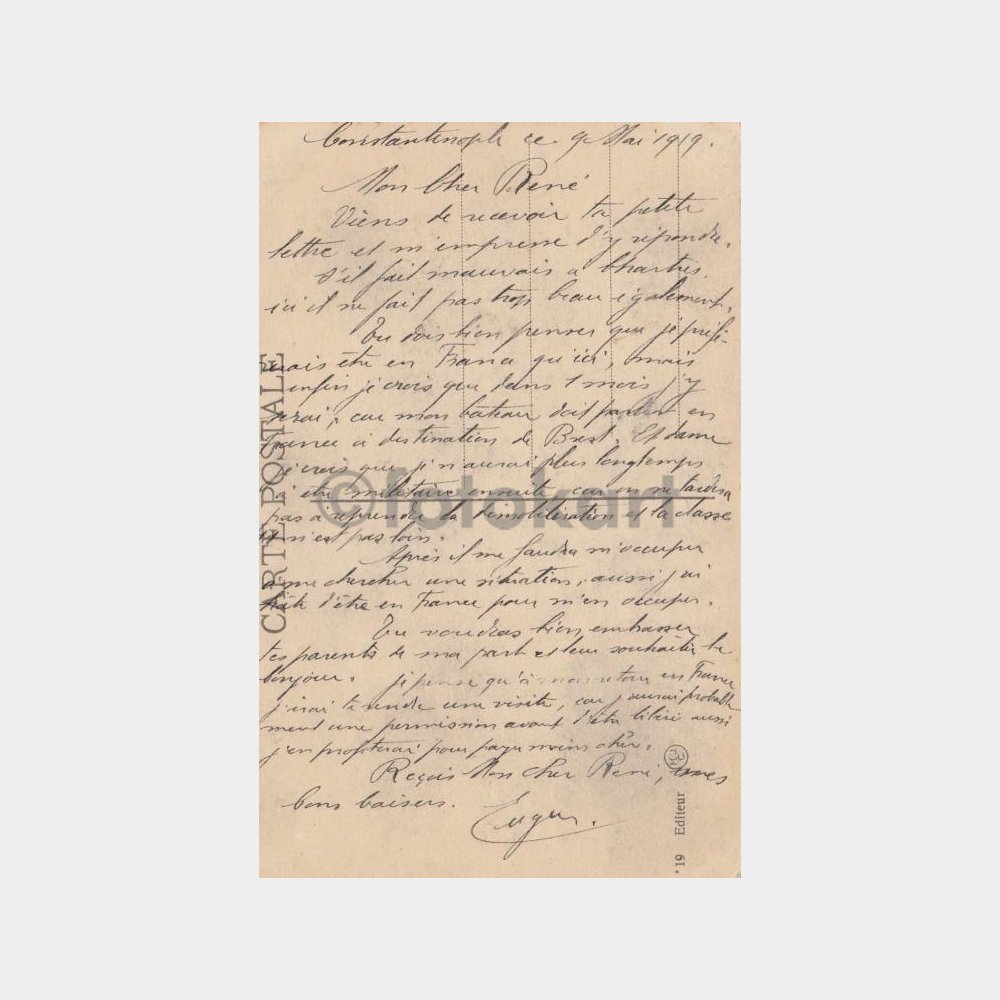 Constantinople ce 9 Mai 1919.
Mon Cher René
Viens de recevoir ta petite
lettre et m'empresse d'y répondre.
S'il fait mauvais à Chartres,
ici il ne fait pas trop beau également.
Tu dois bien penser que je préfé-
rerais être en France qu'ici, mais
enfin je crois que dans 1 mois j'y
serai, car mon bateau doit partir en
France à destination de Brest. Et dame
je crois que je n'aurai plus longtemps
à être militaire ensuite car on ne tardera
pas à reprendre la démobilisation et la classe
n'est pas loin.
Après il me faudra m'occuper
à me chercher une situation, aussi j'ai
hâte d'être en France pour m'en occuper.
Tu voudras bien embrasser
tes parents de ma part et leur souhaiter le
bonjour. je pense qu'à mon retour en France
j'irai te rendre une visite, car j'aurai probable
ment une permission avant d'être libéré aussi
j'en profiterai pour payer moins cher.
Reçois Mon cher René, mes
bons baisers. Eugène.
CARTE POSTALE
19 Editeur
©fotokart